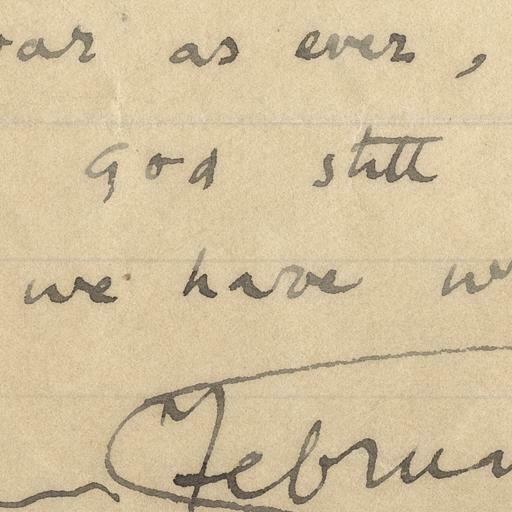 as ever,
God still
we have
Februa